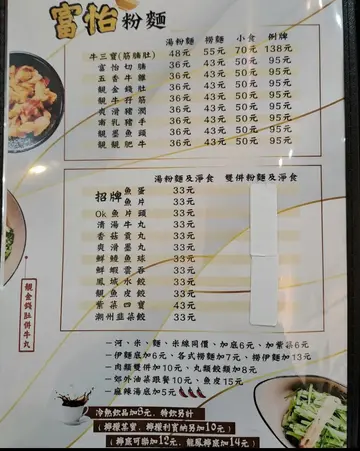 富怡粉麵
湯粉麵 撈麵 小食 例牌
牛三寶(筋腩肚) 48元 55元 70元 138元
富怡切腩 36元 43元 50元 95元
五香牛雜 36元 43元 50元 95元
靚金錢肚 36元 43元 50元 95元
靚牛孖筋 36元 43元 50元 95元
爽滑豬潤 36元 43元 50元 95元
南乳豬手 36元 43元 50元 95元
靚墨魚頭 36元 43元 50元 95元
靚靚肥牛 36元 43元 50元 95元
湯粉麵及淨食 雙併粉麵及淨食
招牌魚蛋 33元
魚片 33元
Ok魚片頭 33元
清湯牛丸 33元
香菇貢丸 33元
爽滑墨丸 33元
鮮鯪魚球 33元
鮮蝦雲吞 33元
鳳城水餃 33元
靚魚皮餃 33元
紫菜四寶 43元
潮州韭菜餃 33元
靚金錢肚併牛丸
－河、米、麵、米線同價、加底6元、加紫菜6元
－伊麵底加6元、各式撈麵加7元、撈伊麵加13元
－肉類雙併加10元、丸類餃類加8元
－郊外油菜跟餐10元、魚皮15元
－麻辣湯底加5元
冷熱飲品加8元、特飲另計
(檸檬茶蜜、檸檬利賓納另加10元)
(檸底可樂加12元、龍鳳檸底加14元)